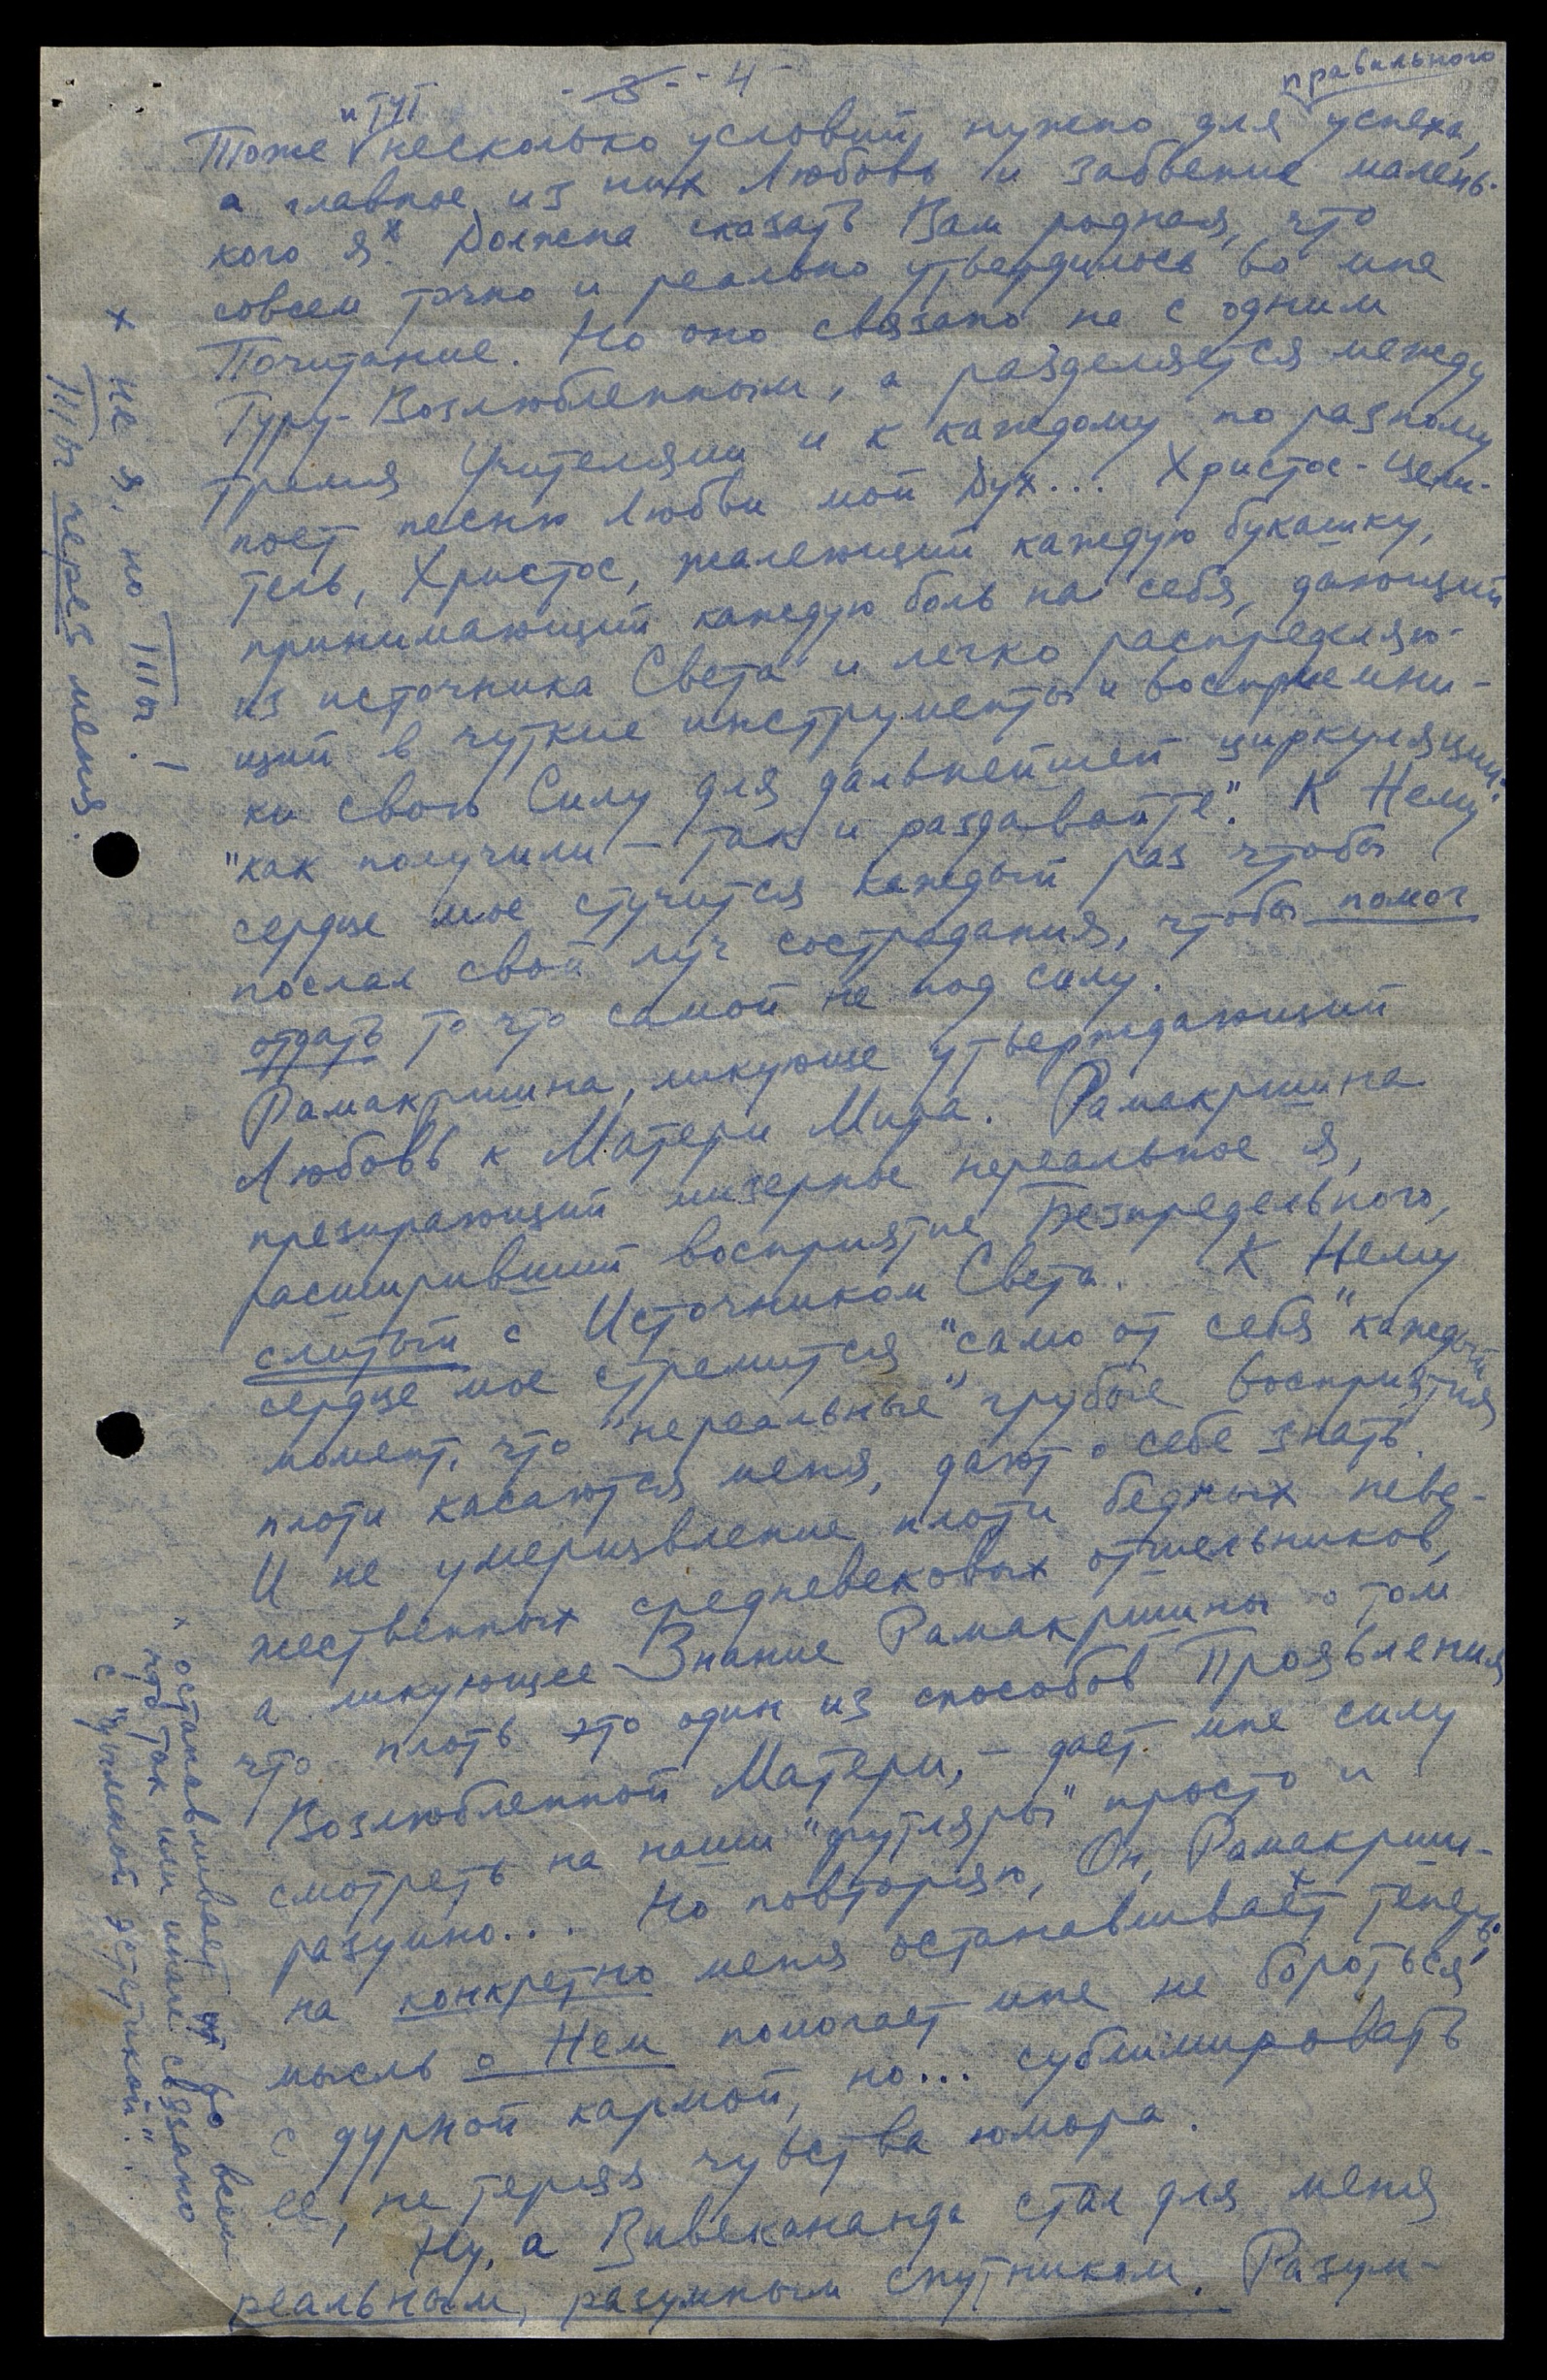 - 3 - - 4 -
правильного
и тут
Тоже несколько условий нужно для успеха,
а главное из них Любовь и забвение малень-
кого я.ˣ Должна сказать Вам родная, что
совсем точно и реально утвердилось во мне
Почитание. Но оно связано не с одним
Гуру-Возлюбленным, а разделяется между
тремя Учителями и к каждому по разному
поет песню Любви мой Дух... Христос-Цели-
тель, Христос, жалеющий каждую букашку,
принимающий каждую боль на себя, дающий
из источника Света и легко распределяю-
щий в чуткие инструменты и восприемни-
ки свою Силу для дальнейшей циркуляции:
"как получили - так и раздавайте". К Нему
сердце мое стучится каждый раз чтобы
послал свой луч сострадания, чтобы помог
отдать то что самой не под силу.
Рамакришна, ликующе утверждающий
Любовь к Матери Мира. Рамакришна
презирающий мизерное нереальное я,
расширивший восприятие Безпредельного,
слитый с Источником Света. К Нему
сердце мое стремится "само от себя" каждый
момент, что "нереальные" грубые восприятия
плоти касаются меня, дают о себе знать.
И не умерщвление плоти бедных неве-
жественных средневековых отшельников,
а ликующее Знание Рамакришны о том
что плоть это один из способов Проявления
Возлюбленной Матери, - дает мне силу
смотреть на наши "футляры" просто и
разумно... Но повторяю, Он, Рамакриш-
на конкретно меня останавливаетˣ теперь,
мысль о Нем помогает мне не бороться
с дурной кармой, но... сублимировать
ее, не теряя чувства юмора.
Ну, а Вивекананда стал для меня
реальным, разумным спутником. Разум-
x не я, но
через меня.
x останавливает во всем
что так или иначе связано
с "умной эстетикой".